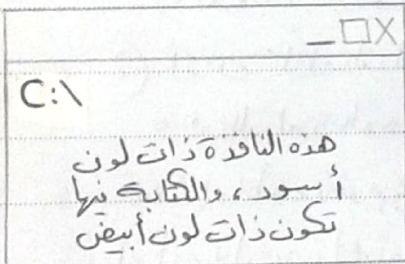 C:\
هذه النافذة ذات لون
أسود، والكتابة فيها
تكون ذات لون أبيض